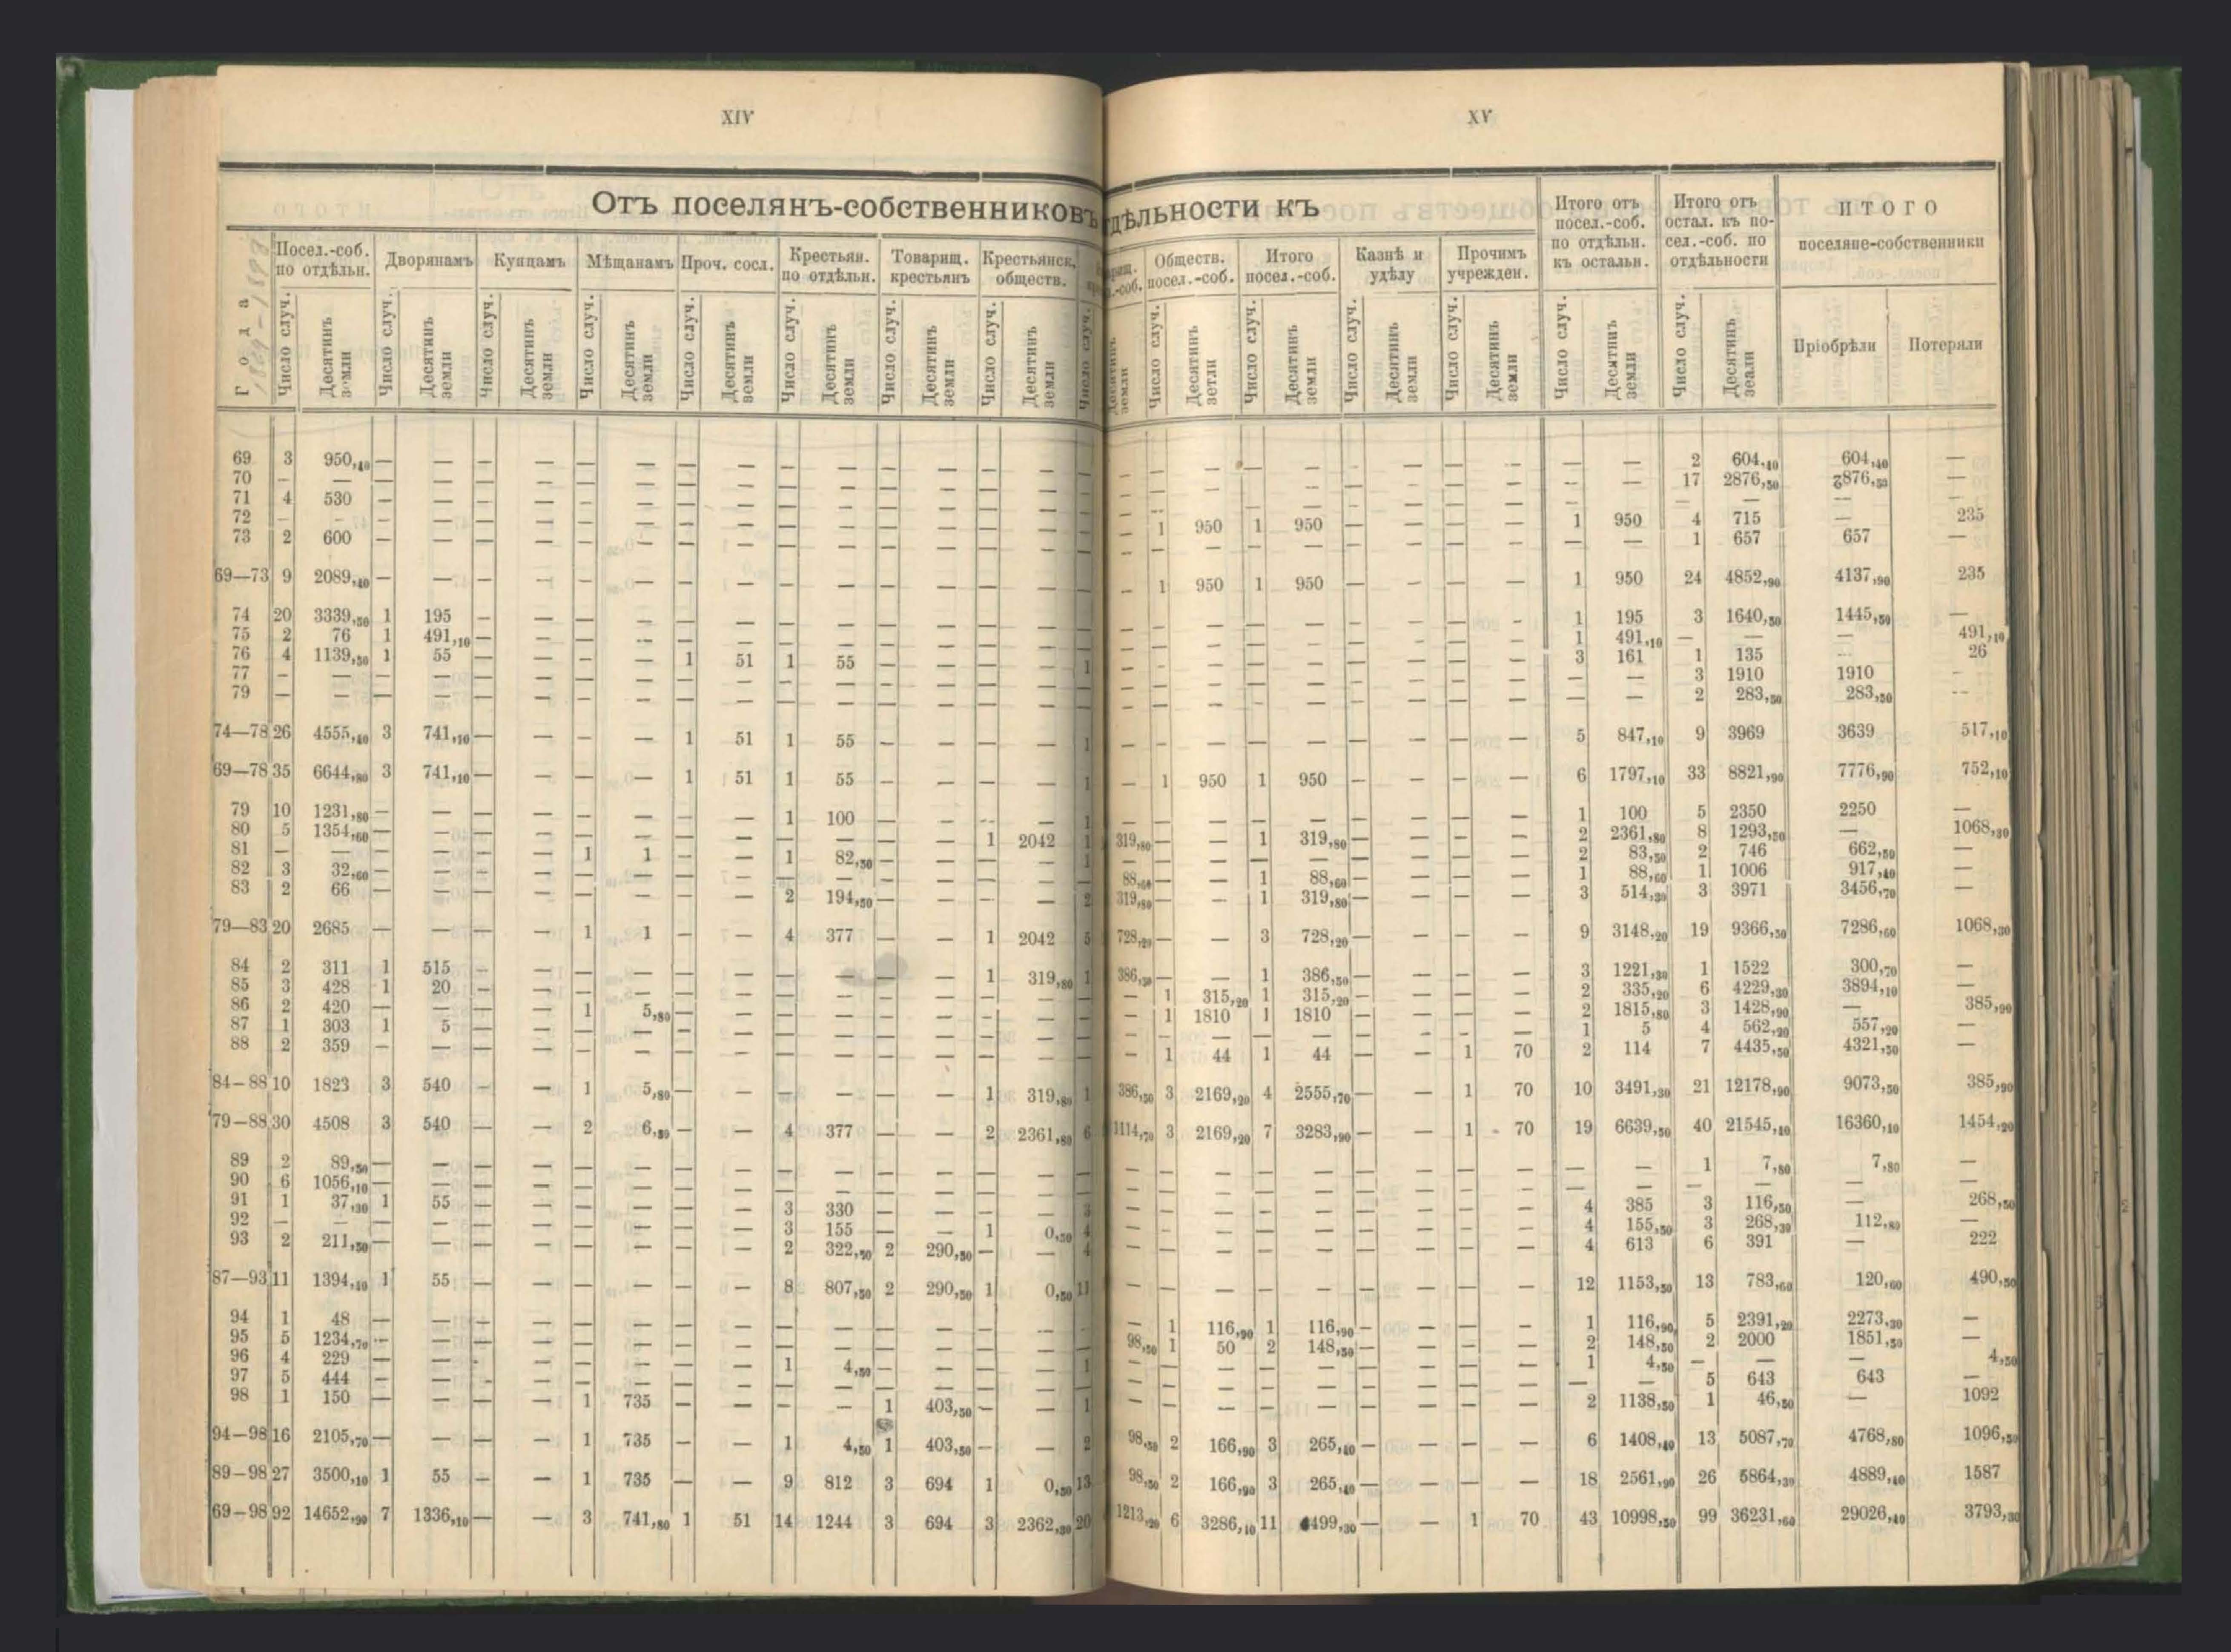 XIV
XV
Отъ поселянъ-собственниковъ
дѣльности къ
Года
1869-1898
Посел.-соб. по отдѣльн. Дворянамъ Купцамъ Мѣщанамъ Проч. сосл. Крестьян. по отдѣльн. Товарищ. крестьянъ Крестьянск. обществ.
Обществ. посел.-соб. Итого посел.-соб. Казнѣ и удѣлу Прочимъ учрежден. Итого отъ посел.-соб. по отдѣльн. къ остальн. Итого отъ остал. къ посел.-соб. по отдѣльности ИТОГО поселяне-собственники
Число случ. Десятинъ земли Число случ. Десятинъ земли Число случ. Десятинъ земли Число случ. Десятинъ земли Число случ. Десятинъ земли Число случ. Десятинъ земли Число случ. Десятинъ земли Число случ. Десятинъ земли Число случ.
Десятинъ земли Число случ. Десятинъ зетли Число случ. Десятинъ земли Число случ. Десятинъ земли Число случ. Десятинъ земли Число случ. Десятинъ земли Число случ. Десятинъ зеали Пріобрѣли Потеряли
69 3 950,40 — — — — — — — — — — — — — — — — — — — — — — — — — — 2 604,40 604,40 —
70 — — — — — — — — — — — — — — — — — — — — — — — — — — — 17 2876,50 2876,50 —
71 4 530 — — — — — — — — — — — — — — — — — — — — — — — — — — — — — —
72 — — — — — — — — — — — — — — — — — — 1 950 1 950 — — — — 1 950 4 715 — 235
73 2 600 — — — — — — — — — — — — — — — — — — — — — — — — — — 1 657 657 —
69—73 9 2089,40 — — — — — — — — — — — — — — — — 1 950 1 950 — — — — 1 950 24 4852,90 4137,90 235
74 20 3339,50 1 195 — — — — — — — — — — — — — — — — — — — — — — 1 195 3 1640,50 1445,50 —
75 2 76 1 491,10 — — — — — — — — — — — — — — — — — — — — — — 1 491,10 — — — 491,10
76 4 1139,50 1 55 — — — — 1 51 1 55 — — — — 1 — — — — — — — — — 3 161 1 135 — 26
77 — — — — — — — — — — — — — — — — — — — — — — — — — — — — 3 1910 1910 —
79 — — — — — — — — — — — — — — — — — — — — — — — — — — — — 2 283,50 283,50 —
74—78 26 4555,40 3 741,10 — — — — 1 51 1 55 — — — — 1 — — — — — — — — — 5 847,10 9 3969 3639 517,10
69—78 35 6644,80 3 741,10 — — — — 1 51 1 55 — — — — 1 — 1 950 1 950 — — — — 6 1797,10 33 8821,90 7776,90 752,10
79 10 1231,80 — — — — — — — — 1 100 — — — — 1 — — — — — — — — — 1 100 5 2350 2250 —
80 5 1354,60 — — — — — — — — — — — — 1 2042 1 319,80 — — 1 319,80 — — — — 2 2361,80 8 1293,50 — 1068,30
81 — — — — — — 1 1 — — 1 82,50 — — — — 1 — — — — — — — — — 2 83,50 2 746 662,50 —
82 3 32,60 — — — — — — — — — — — — — — — 88,60 — — 1 88,60 — — — — 1 88,60 1 1006 917,40 —
83 2 66 — — — — — — — — 2 194,50 — — — — 2 319,80 — — 1 319,80 — — — — 3 514,30 3 3971 3456,70 —
79—83 20 2685 — — — — 1 1 — — 4 377 — — 1 2042 5 728,20 — — 3 728,20 — — — — 9 3148,20 19 9366,50 7286,60 1068,30
84 2 311 1 515 — — — — — — — — — — 1 319,80 1 386,50 — — 1 386,50 — — — — 3 1221,30 1 1522 300,70 —
85 3 428 1 20 — — — — — — — — — — — — — — 1 315,20 1 315,20 — — — — 2 335,20 6 4229,30 3894,10 —
86 2 420 — — — — 1 5,80 — — — — — — — — — — 1 1810 1 1810 — — — — 2 1815,80 3 1428,90 — 385,90
87 1 303 1 5 — — — — — — — — — — — — — — — — — — — — — — 1 5 4 562,20 557,20 —
88 2 359 — — — — — — — — — — — — — — — — 1 44 1 44 — — 1 70 2 114 7 4435,50 4321,50 —
84—88 10 1823 3 540 — — 1 5,80 — — — — — — 1 319,80 1 386,50 3 2169,20 4 2555,70 — — 1 70 10 3491,30 21 12178,90 9073,50 385,90
79—88 30 4508 3 540 — — 2 6,80 — — 4 377 — — 2 2361,80 6 1114,70 3 2169,20 7 3283,90 — — 1 70 19 6639,50 40 21545,40 16360,10 1454,20
89 2 89,50 — — — — — — — — — — — — — — — — — — — — — — — — — — 1 7,80 7,80 —
90 6 1056,10 — — — — — — — — — — — — — — — — — — — — — — — — — — — — — —
91 1 37,30 1 55 — — — — — — 3 330 — — — — 3 — — — — — — — — — 4 385 3 116,50 — 268,50
92 — — — — — — — — — — 3 155 — — 1 0,50 4 — — — — — — — — — 4 155,50 3 268,30 112,80 —
93 2 211,50 — — — — — — — — 2 322,50 2 290,50 — — 4 — — — — — — — — — 4 613 6 391 — 222
87—93 11 1394,40 1 55 — — — — — — 8 807,50 2 290,50 1 0,50 11 — — — — — — — — — 12 1153,50 13 783,60 120,60 490,50
94 1 48 — — — — — — — — — — — — — — — — 1 116,90 1 116,90 — — — — 1 116,90 5 2391,20 2273,30 —
95 5 1234,70 — — — — — — — — — — — — — — — 98,50 1 50 2 148,50 — — — — 2 148,50 2 2000 1851,50 —
96 4 229 — — — — — — — — 1 4,50 — — — — 1 — — — — — — — — — 1 4,50 — — — 4,50
97 5 444 — — — — — — — — — — — — — — — — — — — — — — — — — — 5 643 643 —
98 1 150 — — — — 1 735 — — — — 1 403,50 — — 1 — — — — — — — — — 2 1138,50 1 46,50 — 1092
94—98 16 2105,70 — — — — 1 735 — — 1 4,50 1 403,50 — — 2 98,50 2 166,90 3 265,40 — — — — 6 1408,40 13 5087,70 4768,80 1096,50
89—98 27 3500,10 1 55 — — 1 735 — — 9 812 3 694 1 0,50 13 98,50 2 166,90 3 265,40 — — — — 18 2561,90 26 5864,30 4889,40 1587
69—98 92 14652,90 7 1336,10 — — 3 741,80 1 51 14 1244 3 694 3 2362,30 20 1213,20 6 3286,10 11 4499,30 — — 1 70 43 10998,50 99 36231,60 29026,40 3793,30